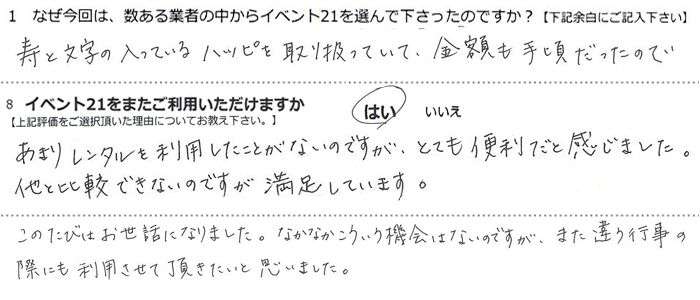 1 なぜ今回は、数ある業者の中からイベント21を選んで下さったのですか？【下記余白にご記入下さい】
寿と文字の入っているハッピを取り扱っていて、金額も手頃だったので
8 イベント21をまたご利用いただけますか はい いいえ
【上記評価をご選択頂いた理由についてお教え下さい。】
あまりレンタルを利用したことがないのですが、とても便利だと感じました。
他と比較できないのですが満足しています。
このたびはお世話になりました。なかなかこういう機会はないのですが、また違う行事の
際にも利用させて頂きたいと思いました。